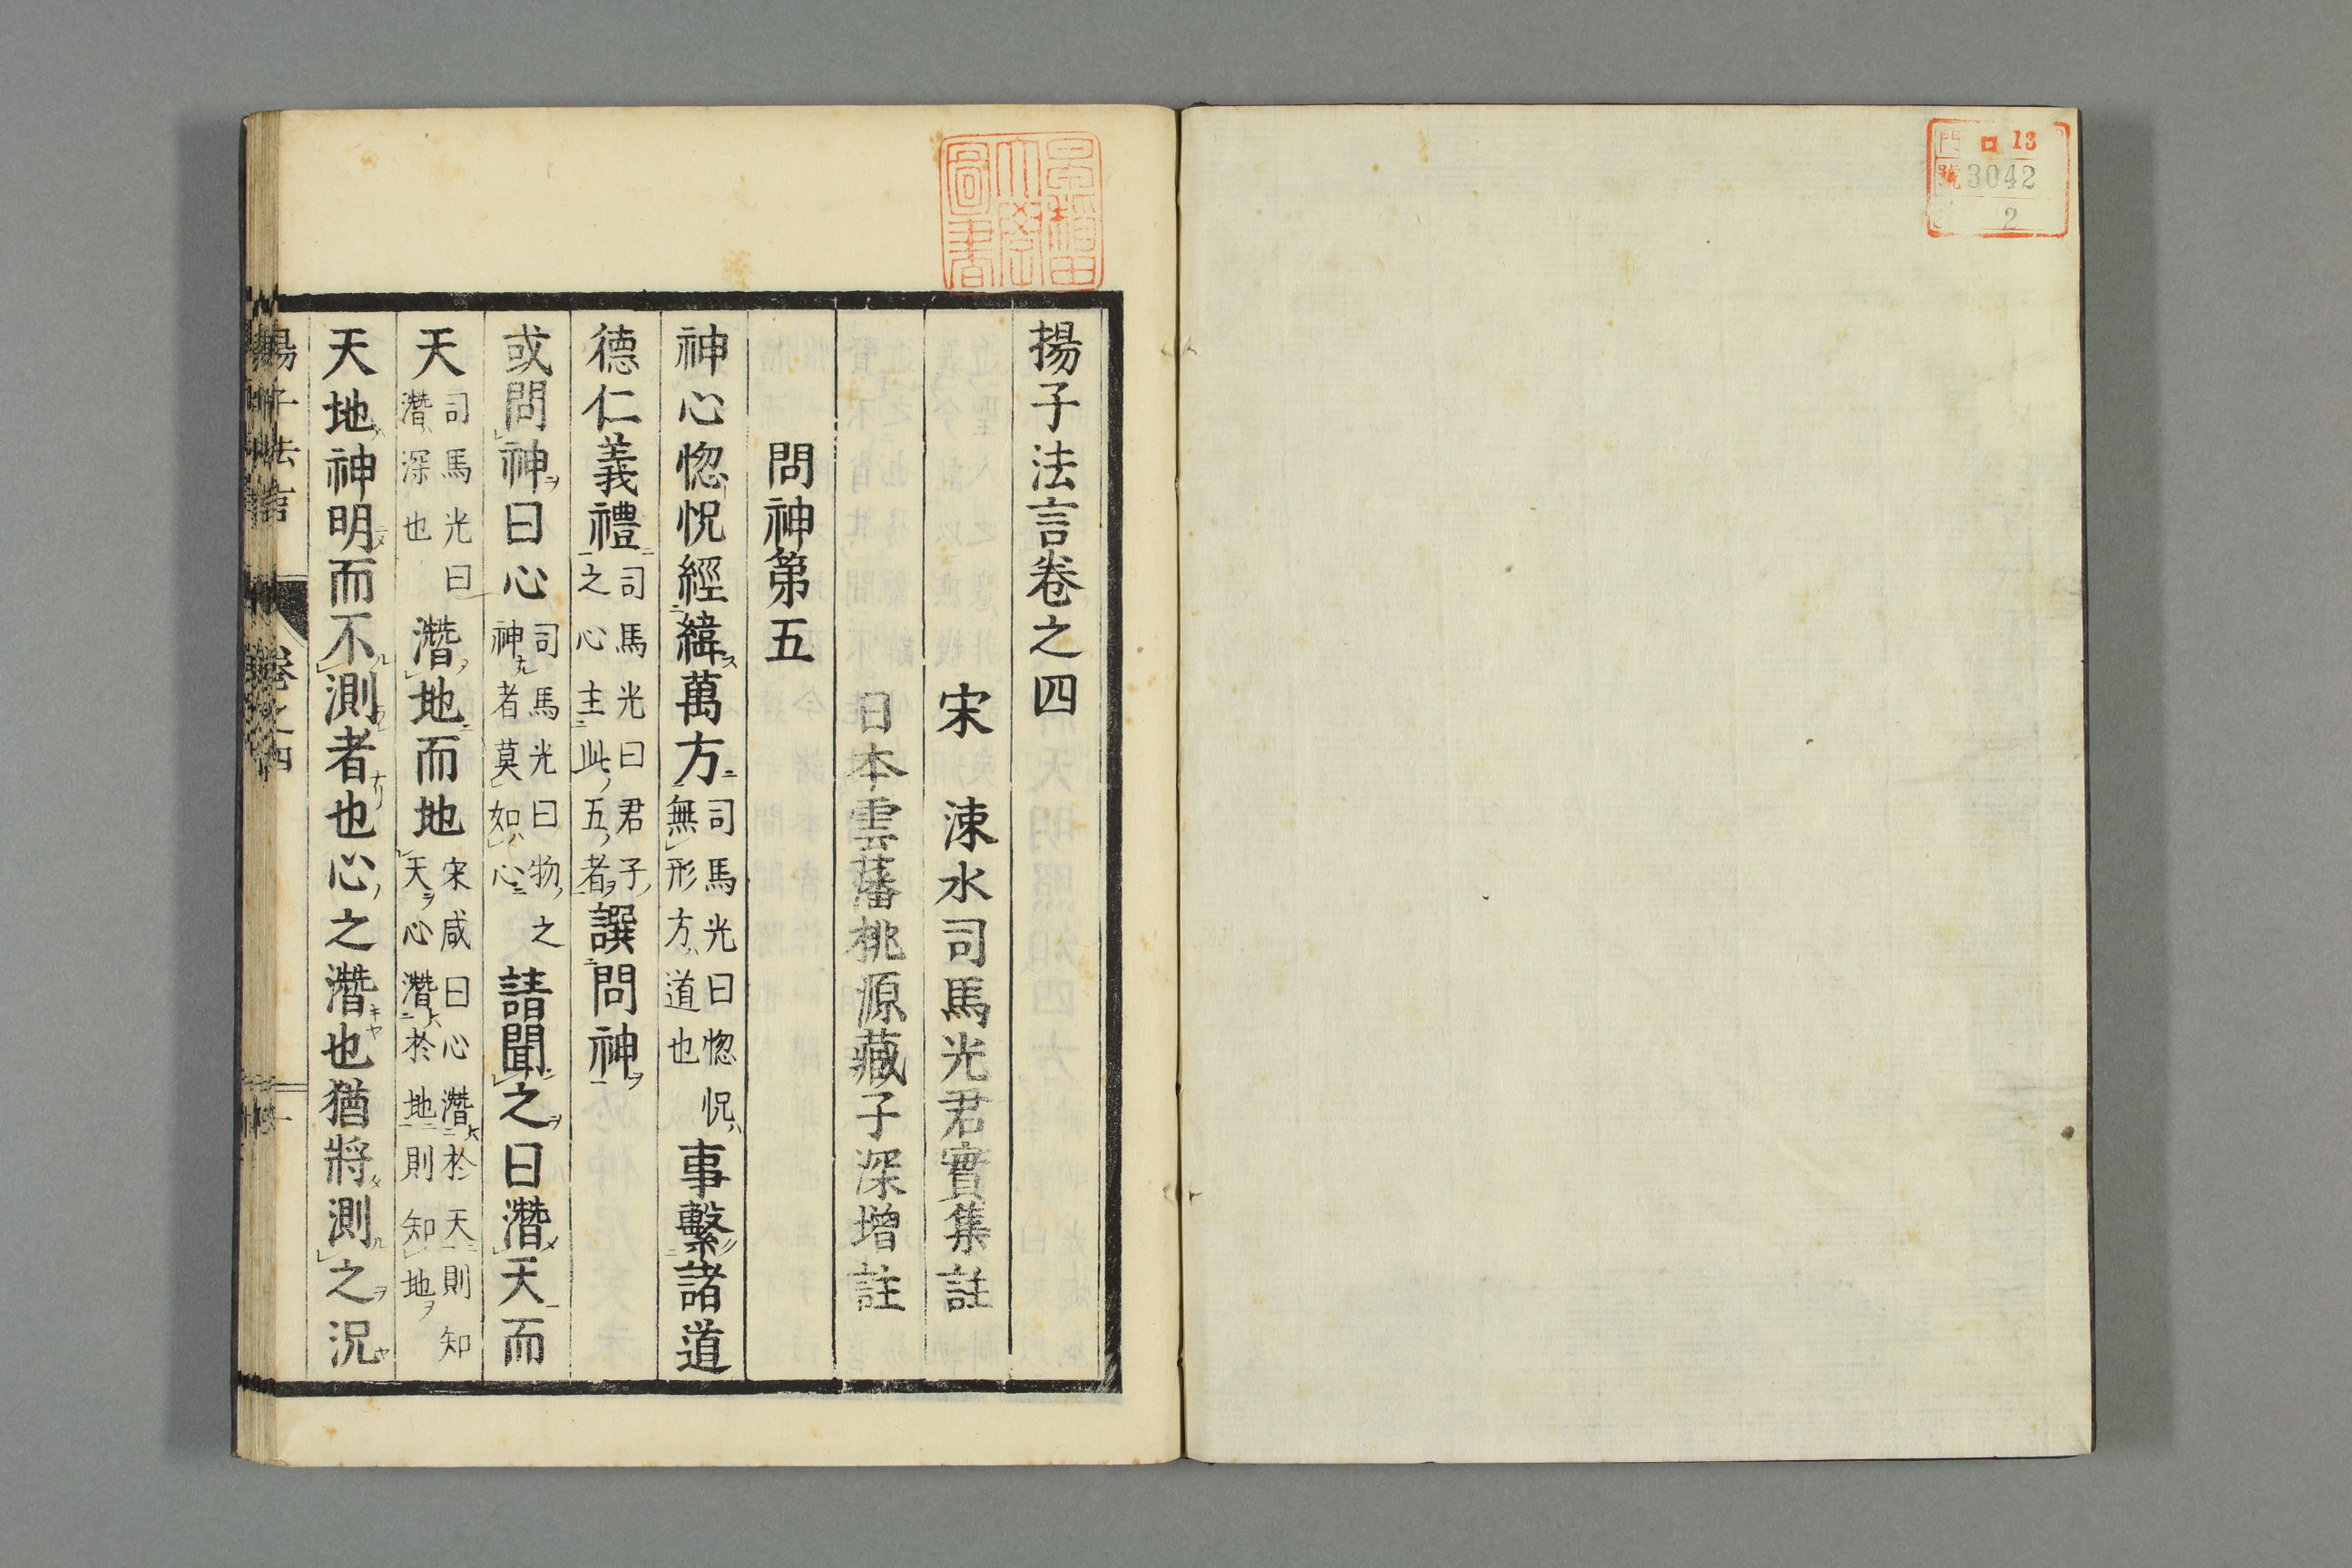 門 ロ 13
號 3042
2
早稲田
大學
圖書
揚子法言卷之四
宋 涑水司馬光君實集註
日本雲藩桃源藏子深增註
問神第五
神心惚怳經緯萬方司馬光曰惚怳無形方道也事繫諸道
德仁義禮司馬光曰君子之心主此五者譔問神
或問神曰心司馬光曰物之神者莫如心請聞之曰潛天而
天司馬光曰潛深也潛地而地宋咸曰心潛於天則知天心潛於地則知地
天地神明而不測者也心之潛也猶將測之況
揚子法言 卷之四 一